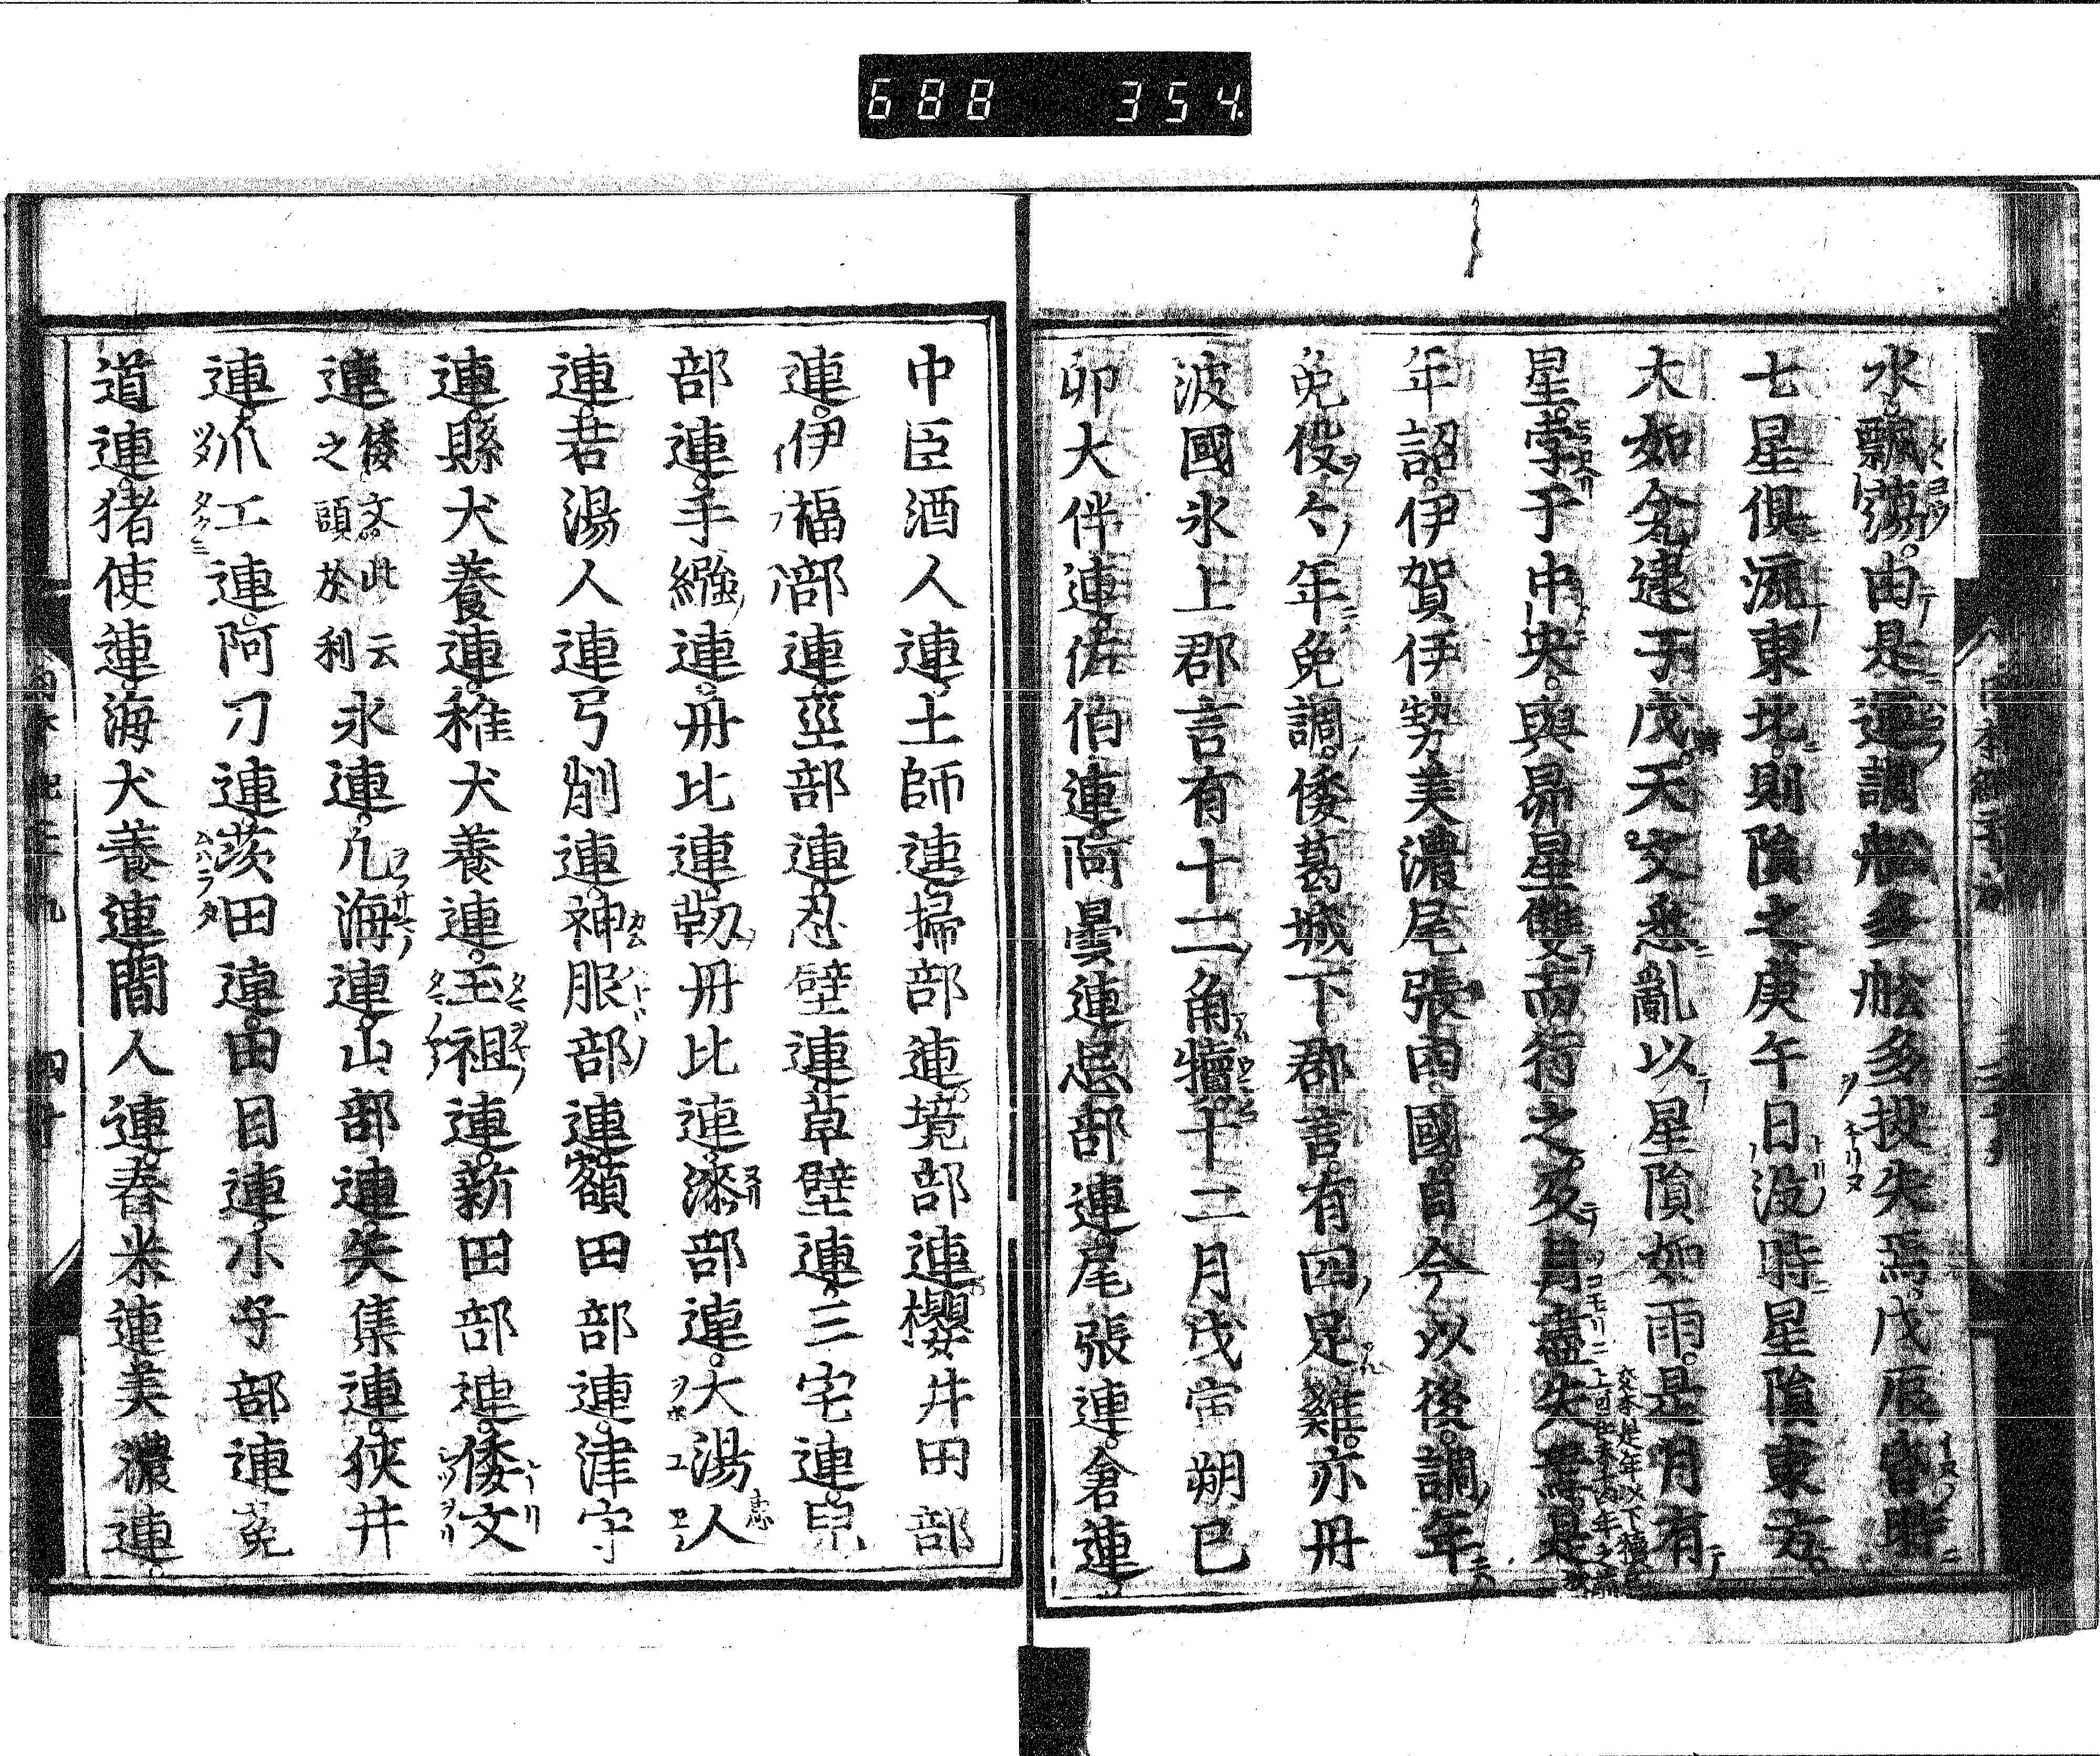 688 354.
水飄蕩由是運調舩多舩多投失焉戊辰昏時
七星俱流東北則隕之庚午日没時星隕東方
大如瓮逮于戊天文悉亂以星隕如雨是月有
星孛于中央與昴星雙而行之及月盡失焉是
年詔伊賀伊勢美濃尾張四國自今以後調年
免役々年免調倭葛城下郡言有四足雞亦丹
波國氷上郡言有十二角犢十二月戊寅朔己
卯大伴連佐伯連阿曇連忌部連尾張連倉連
中臣酒人連土師連掃部連境部連櫻井田部
連伊福部連巫部連忍壁連草壁連三宅連兒
部連手繦連丹比連靱丹比連漆部連大湯人
連若湯人連弓削連神服部連額田部連津守
連縣犬養連稚犬養連玉祖連新田部連倭文
連倭文此云之頭於利氷連凡海連山部連矢集連狹井
連爪工連阿刀連茨田連田目連小子部連菟
道連猪使連海犬養連間人連舂米連美濃連